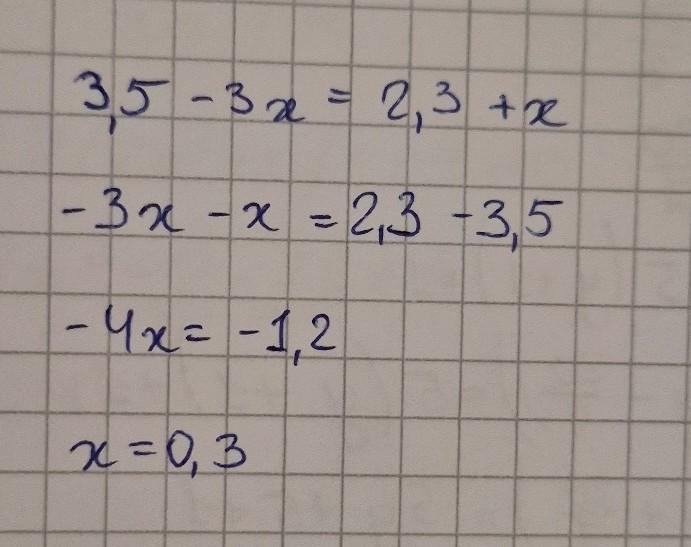 3,5 - 3x = 2,3 + x
-3x - x = 2,3 - 3,5
-4x = -1,2
x = 0,3